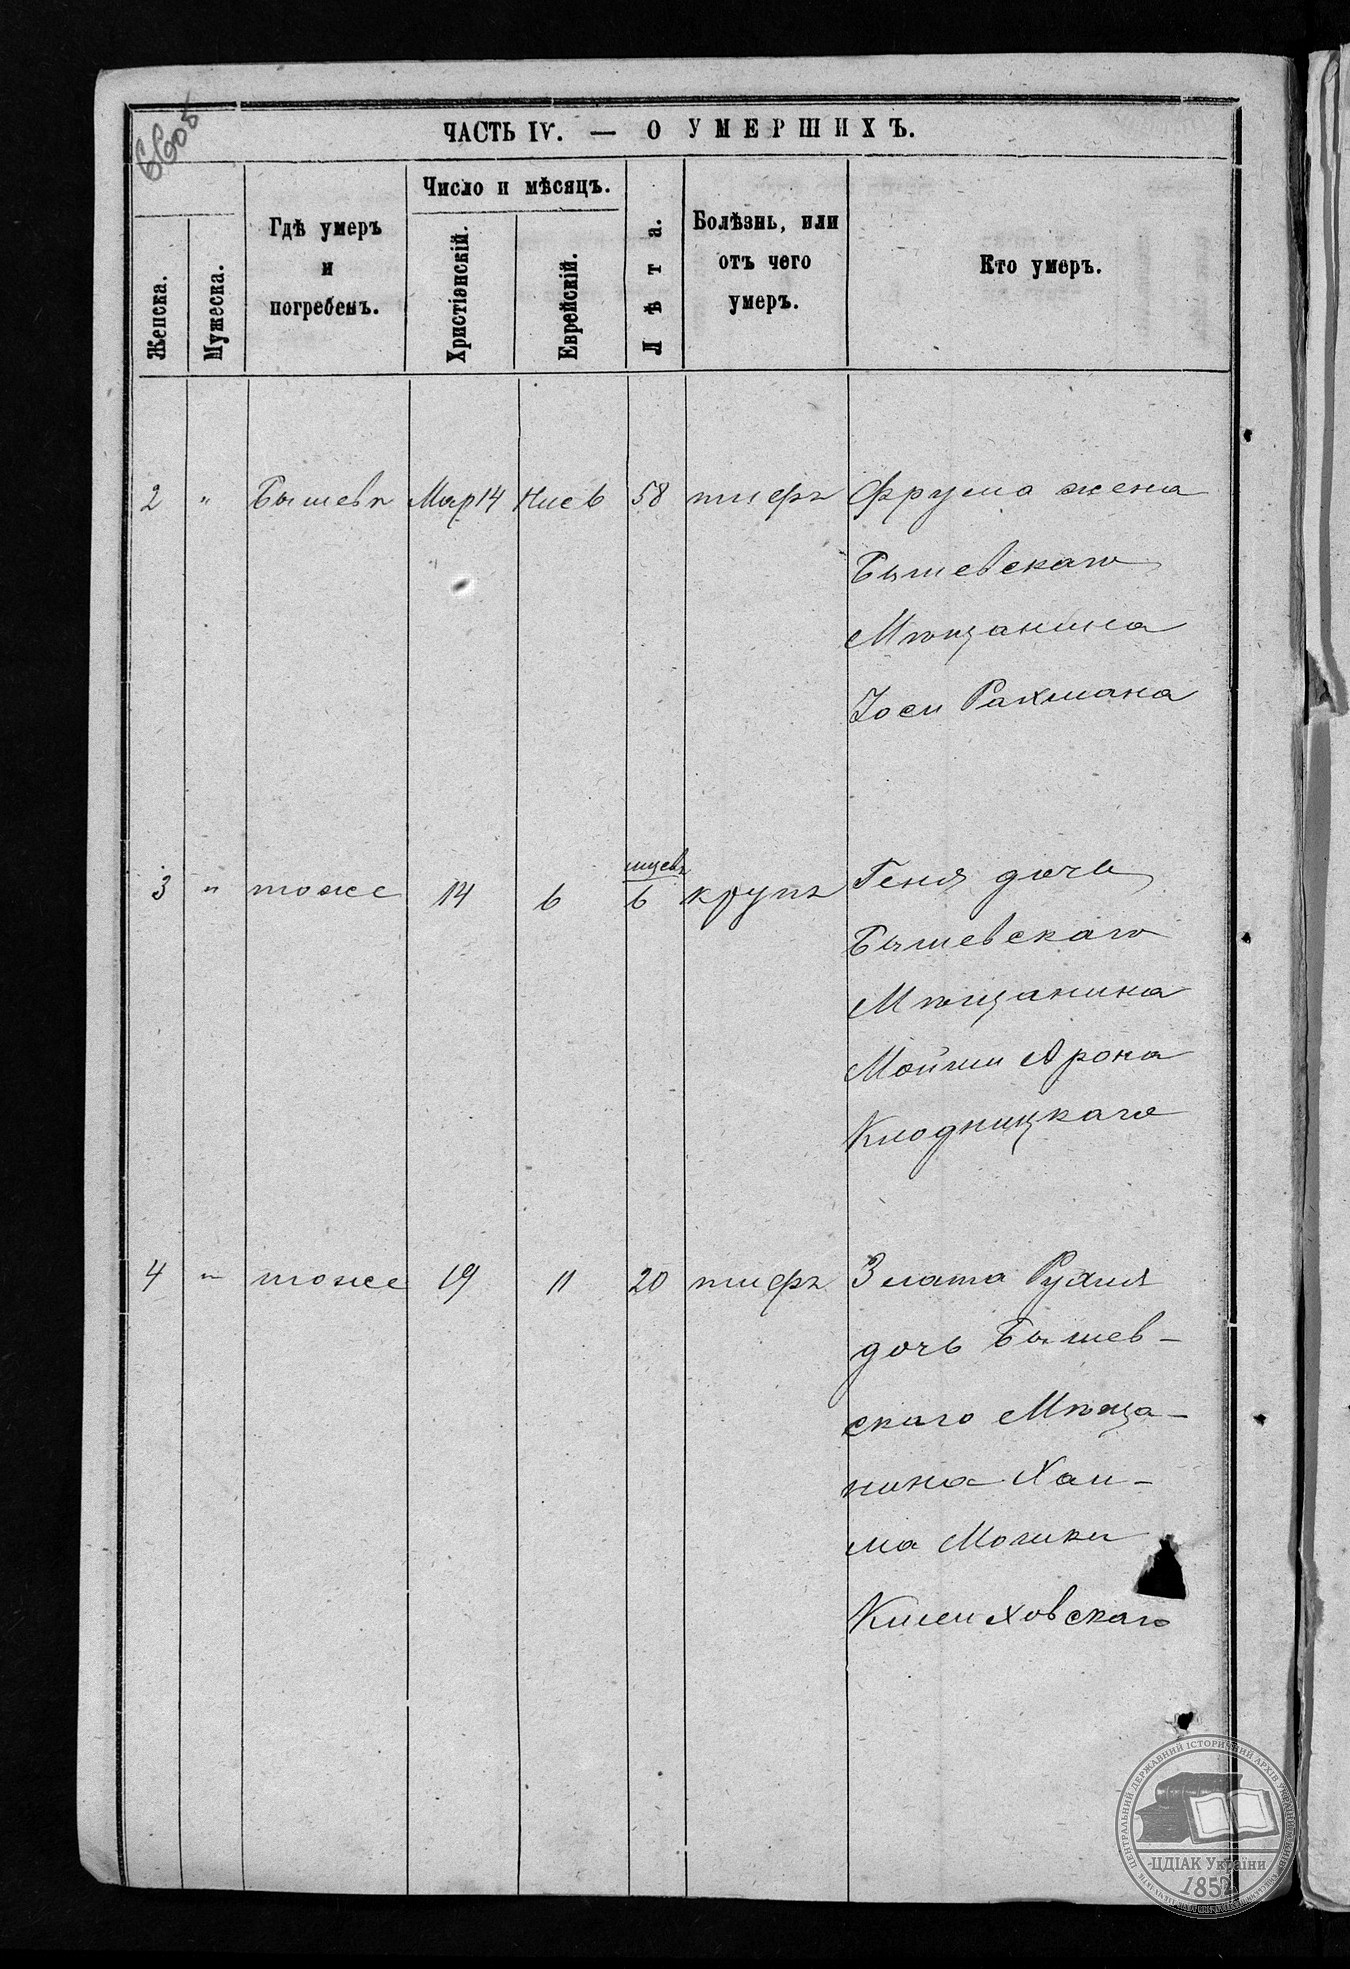 66об
ЧАСТЬ IV. — О УМЕРШИХЪ.
Женска.
Мужеска.
Гдѣ умеръ
и
погребенъ.
Число и мѣсяцъ.
Христіанскій.
Еврейскій.
Лѣта.
Болѣзнь, или
отъ чего
умеръ.
Кто умеръ.
2 " Бышевъ Мар 14 Нис 6 58 тифъ Фрума жена
Бышевскаго
Мѣщанина
Іоси Рахмана
мцсев
3 " тоже 14 6 6 крупъ Геня дочь
Бышевскаго
Мѣщанина
Мойши Арона
Клодницкаго
4 " тоже 19 11 20 тифъ Злата Рухля
дочь Бышев-
скаго Мѣща-
нина Хаи-
ма Мошки
Клеиховскаго
ЦЕНТРАЛЬНИЙ ДЕРЖАВНИЙ ІСТОРИЧНИЙ АРХІВ УКРАЇНИ
ЦДІАК України
1852